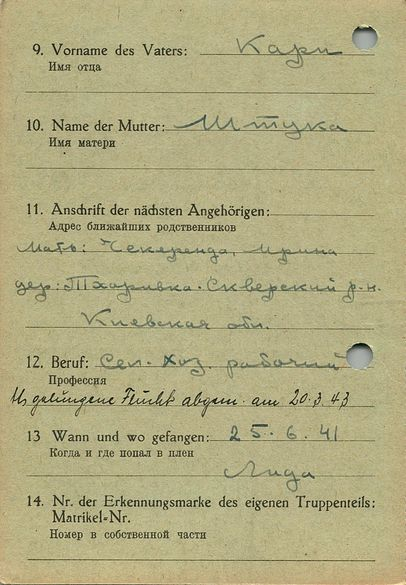 9. Vorname des Vaters: Карп
Имя отца
10. Name der Mutter: Штука
Имя матери
11. Anschrift der nächsten Angehörigen:
Адрес ближайших родственников
Мать: Чекеренда, Ирина
дер: Тхоривка. Скверский р-н.
Киевская обл.
12. Beruf: Сел. Хоз. рабочий
Профессия
gelungene Flucht abgem. am 20.3.43
13 Wann und wo gefangen: 25.6.41
Когда и где попал в плен
Лида
14. Nr. der Erkennungsmarke des eigenen Truppenteils:
Matrikel-Nr.
Номер в собственной части